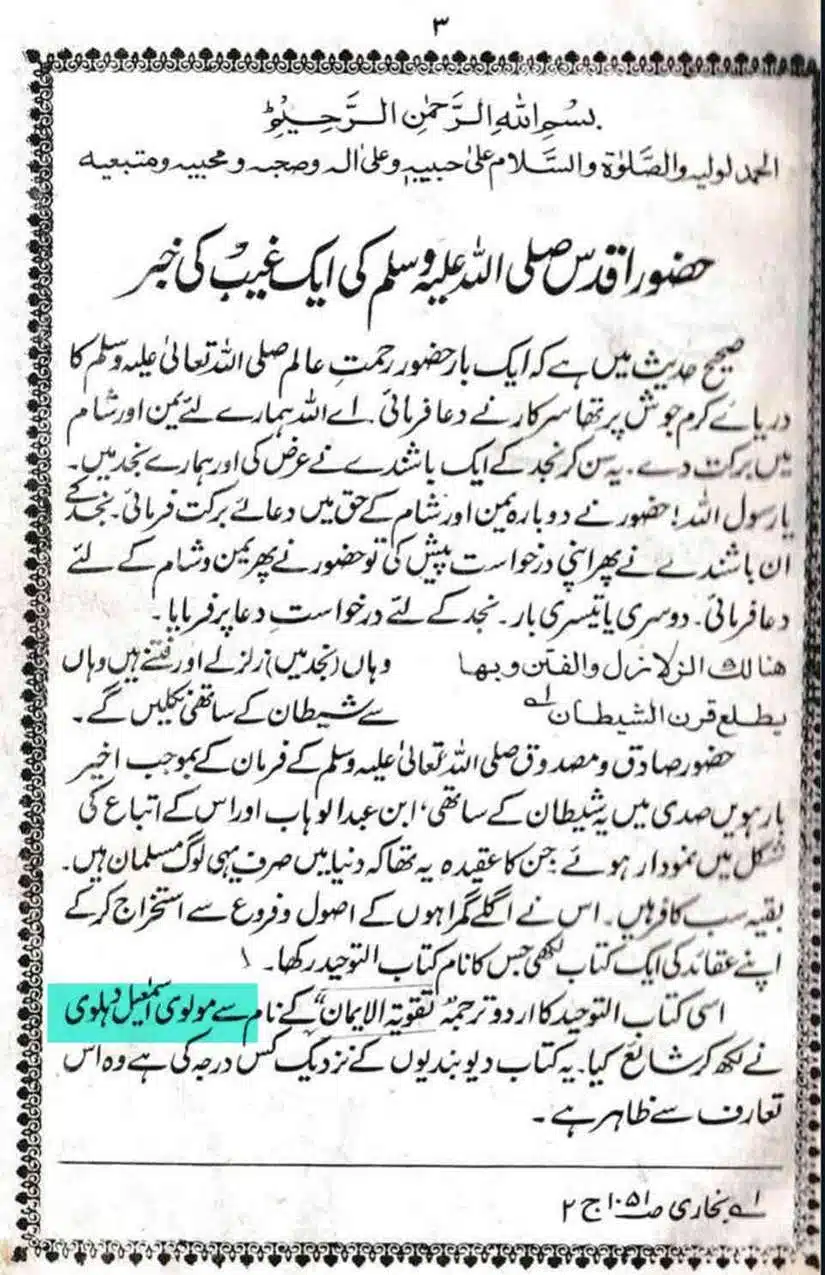 ۳
بسْمِ اللهِ الرَّحمٰنِ الرَّحِيْمِؕ
الحمد لوليه والصَّلوٰة والسَّلام علىٰ حبيبہٖ وعلىٰ اٰلہ وصحبہ ومحبیہ ومتبعیہ
حضور اقدس صلی اللہ علیہ وسلم کی ایک غیبؔ کی خبر
صحیح حدیث میں ہے کہ ایک بار حضور رحمتِ عالم صلی اللہ تعالیٰ علیہ وسلم کا
دریائے کرم جوش پر تھا سرکار نے دعا فرمائی۔ اے اللہ ہمارے لئے یمن اور شام
میں برکت دے۔ یہ سن کر نجد کے ایک باشندے نے عرض کی اور ہمارے نجد میں۔
یا رسول اللہ! حضور نے دوبارہ یمن اور شام کے حق میں دعائے برکت فرمائی۔ نجد کے
ان باشندے نے پھر اپنی درخواست پیش کی تو حضور نے پھر یمن وشام کے لئے
دعا فرمائی۔ دوسری یا تیسری بار۔ نجد کے لئے درخواستِ دعا پر فرمایا۔
هنالك الزلازل والفتن وبها وہاں (نجد میں) زلزلے اور فتنے ہیں وہاں
یطلع قرن الشیطان لہ سے شیطان کے ساتھی نکلیں گے۔
حضور صادق ومصدوق صلی اللہ تعالیٰ علیہ وسلم کے فرمان کے بموجب اخیر
بارہویں صدی میں یہ شیطان کے ساتھی، ابن عبدالوہاب اور اس کے اتباع کی
شکل میں نمودار ہوئے جن کا عقیدہ یہ تھا کہ دنیا میں صرف یہی لوگ مسلمان ہیں۔
بقیہ سب کافر ہیں۔ اس نے اگلے گمراہوں کے اصول وفروع سے استخراج کر کے
اپنے عقائد کی ایک کتاب لکھی جس کا نام کتاب التوحید رکھا۔
اسی کتاب التوحید کا اردو ترجمہ "تقویۃ الایمان" کے نام سے مولوی اسمٰعیل دہلوی
نے لکھ کر شائع کیا۔ یہ کتاب دیوبندیوں کے نزدیک کس درجہ کی ہے وہ اس
تعارف سے ظاہر ہے۔
لہ بخاری ص۱۰۵۱ ج ۲